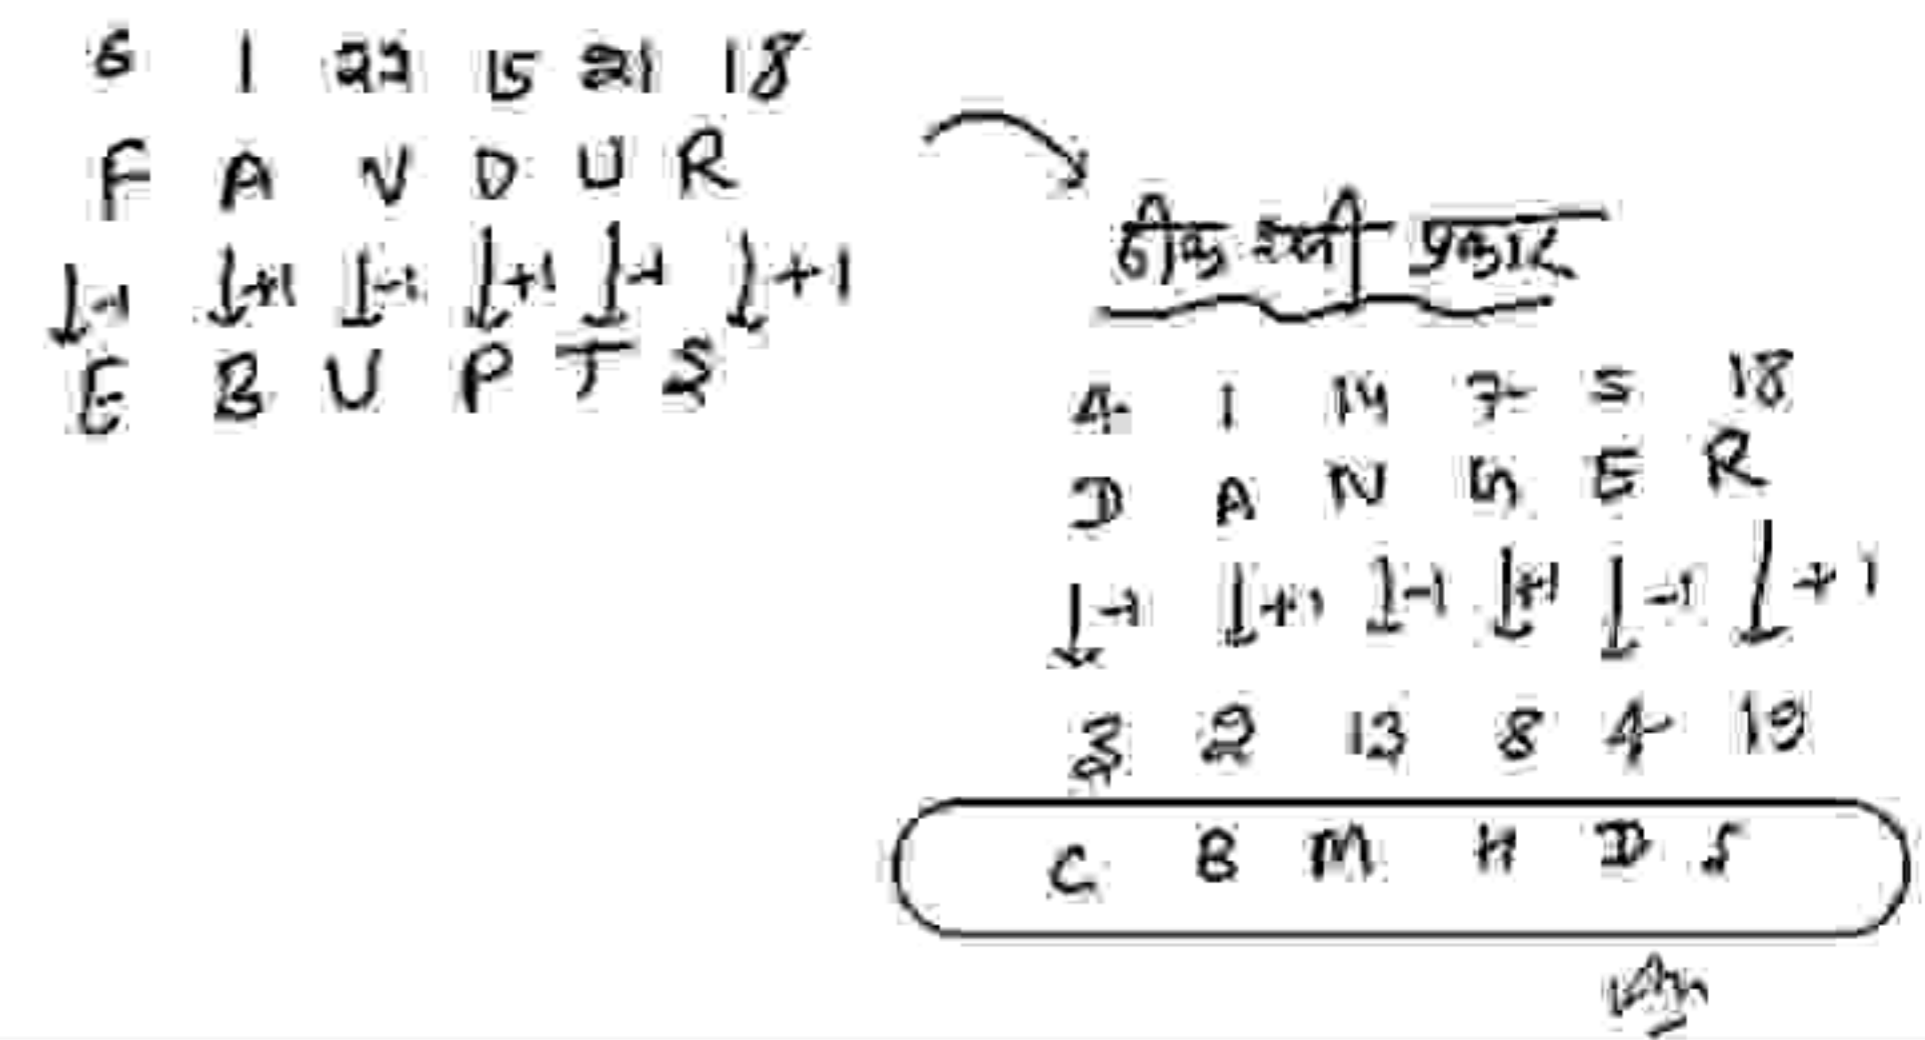 6 1 22 15 21 18
F A V O U R
-1 +1 -1 +1 -1 +1
E B U P T S
ठीक इसी प्रकार
4 1 14 7 5 18
D A N G E R
-1 +1 -1 +1 -1 +1
3 2 13 8 4 19
C B M H D S
Ans